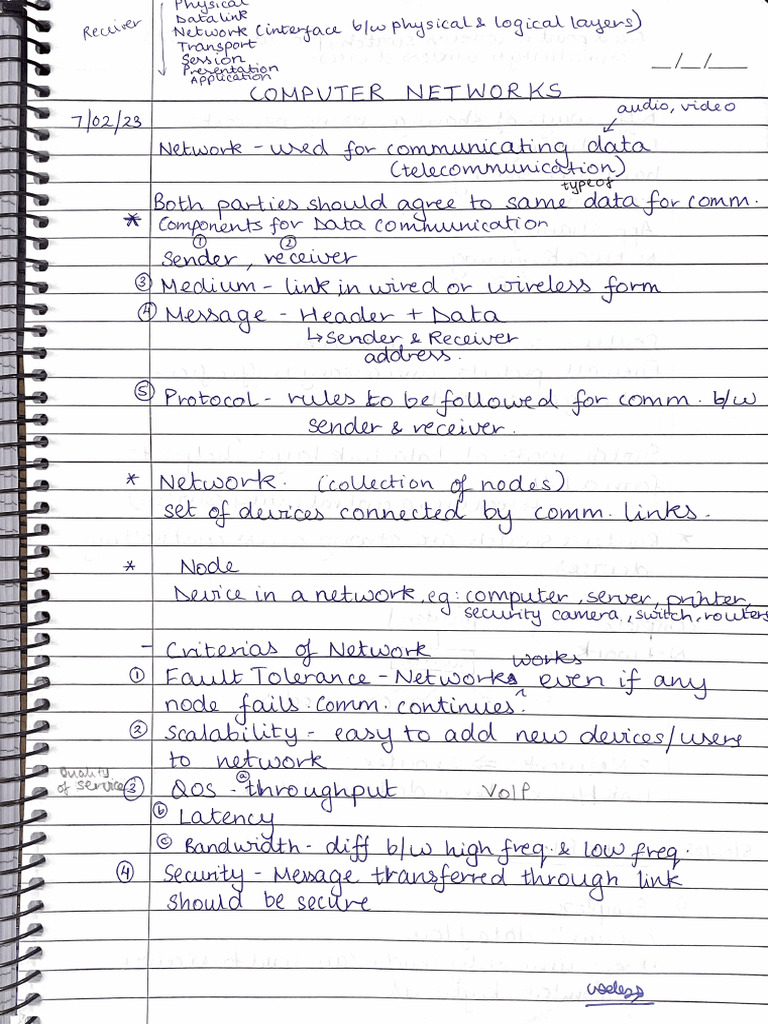 Receiver
Physical
Data link
Network (interface b/w physical & logical layers)
Transport
Session
Presentation
Application
__/__/__
COMPUTER NETWORKS
7/02/23
audio, video
Network - used for communicating data
(telecommunication)
type of
Both parties should agree to same data for comm.
* Components for Data communication
① ②
Sender, receiver
③ Medium - link in wired or wireless form
④ Message - Header + Data
↳ Sender & Receiver
address.
⑤ Protocol - rules to be followed for comm. b/w
sender & receiver.
* Network. (collection of nodes)
set of devices connected by comm. links.
* Node
Device in a network, eg: computer, server, printer,
security camera, switch, routers
- Criterias of Network
works
① Fault Tolerance - Networks even if any
node fails. Comm. continues.
② Scalability - easy to add new devices/users
to network
Quality
of service
③ QOS - ⓐ throughput VoIP
ⓑ Latency
ⓒ Bandwidth - diff b/w high freq & low freq.
④ Security - Message transferred through link
should be secure